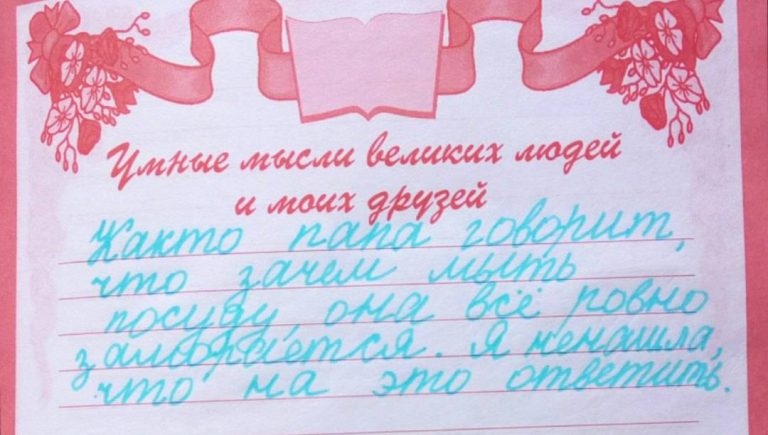 Умные мысли великих людей
и моих друзей
Както папа говорит,
что зачем мыть
посуду, она всё ровно
Я ненашла,
что на это ответить.